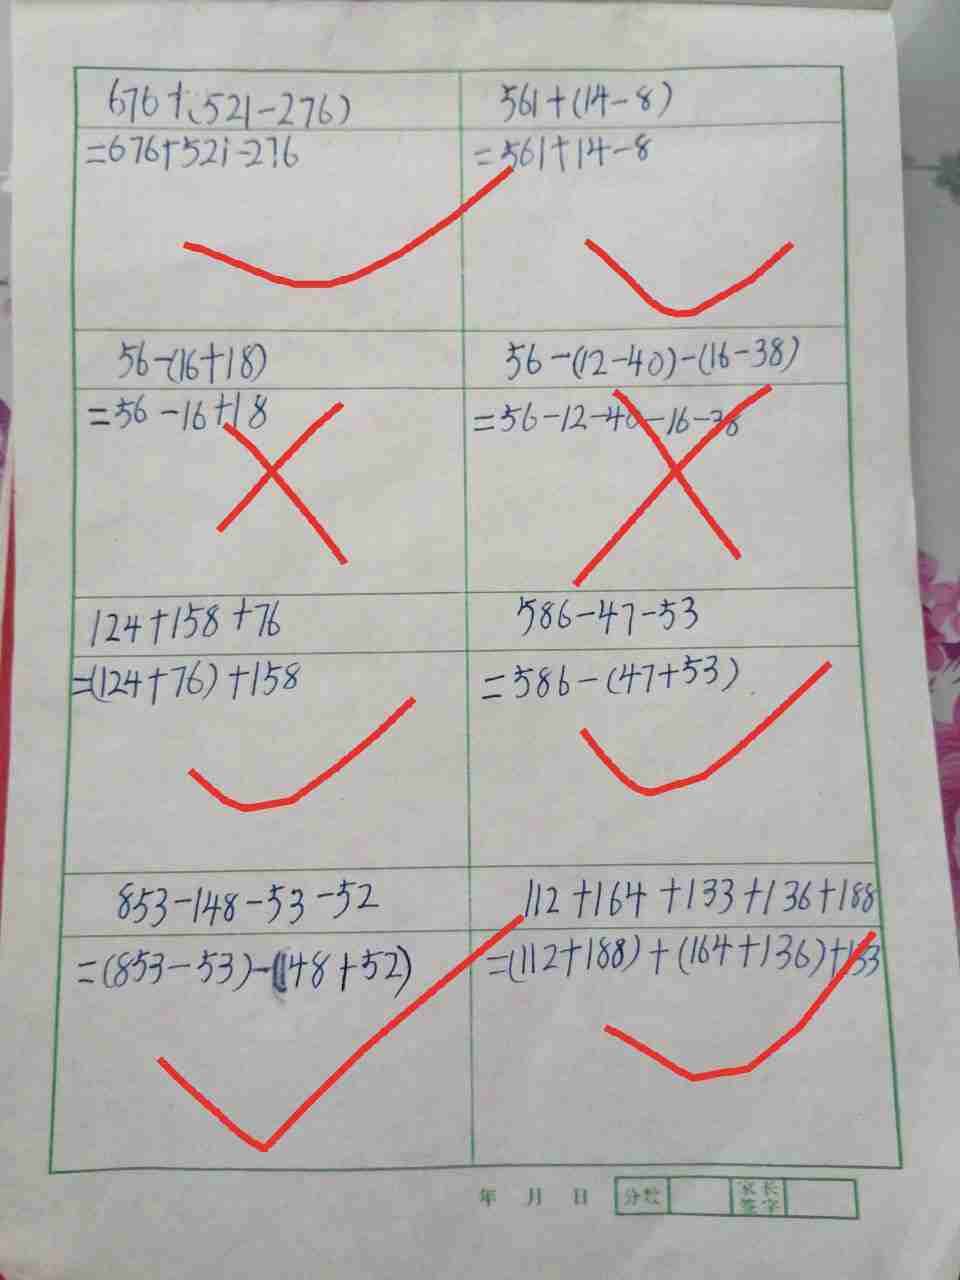 676+(521-276)
=676+521-276
561+(14-8)
=561+14-8
56-(16+18)
=56-16+18
56-(12-40)-(16-38)
=56-12-40-16-38
124+158+76
=(124+76)+158
586-47-53
=586-(47+53)
853-148-53-52
=(853-53)-(148+52)
112+164+133+136+188
=(112+188)+(164+136)+133
年 月 日 分数 家长签字